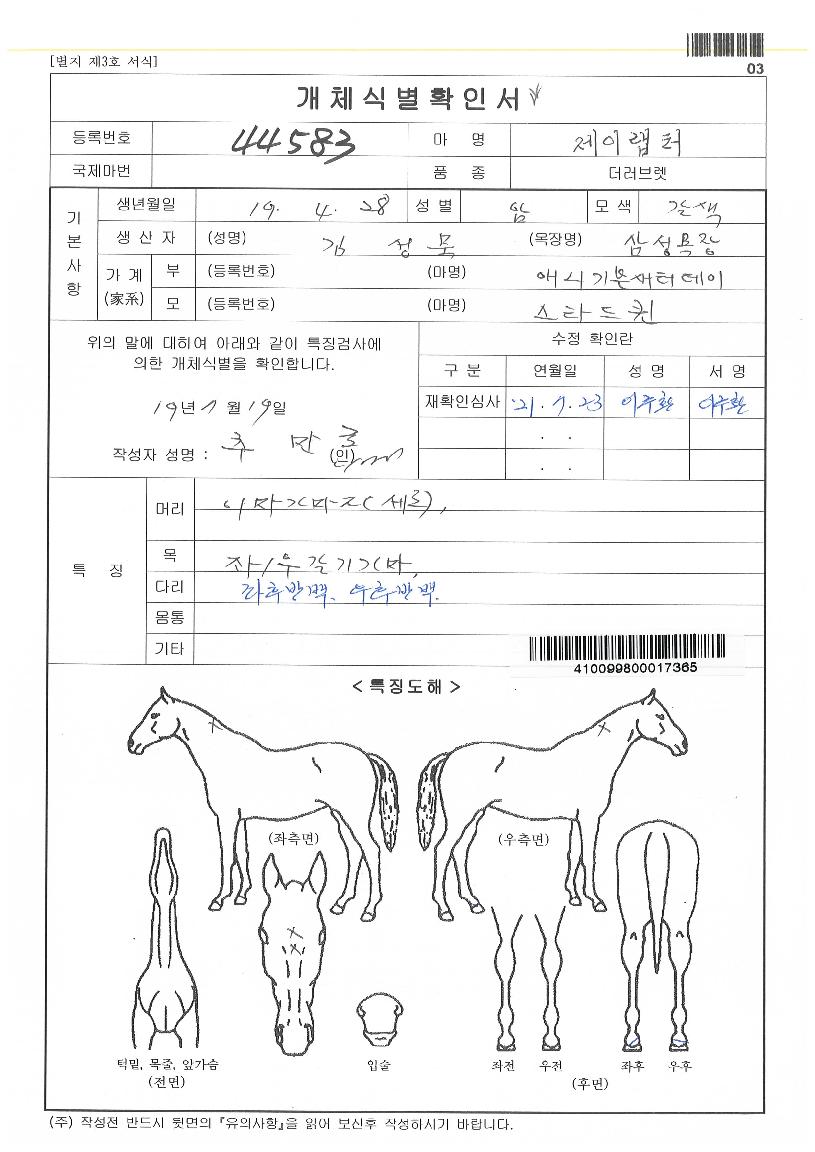 [별지 제3호 서식]
03
개체식별확인서
등록번호 44583 마 명 제이랩터
국제마번 품 종 더러브렛
기본사항
생년월일 19. 4. 28 성별 암 모색 갈색
생 산 자 (성명) 김 성 목 (목장명) 삼성목장
가계 (家系) 부 (등록번호) (마명) 애니기븐새터데이
모 (등록번호) (마명) 스타드퀸
위의 말에 대하여 아래와 같이 특징검사에
의한 개체식별을 확인합니다.
19년 7월 19일
작성자 성명 : 추 만 (인)
수정 확인란
구 분 연월일 성 명 서 명
재확인심사 '21. 7. 23 이주환 이주환
. .
. .
특 징
머리 이마가마-2(세로),
목 좌/우갈기가마,
다리 좌후반백. 우후반백.
몸통
기타
410099800017365
< 특징도해 >
(좌측면) (우측면)
턱밑, 목줄, 앞가슴 입술 좌전 우전 좌후 우후
(전면) (후면)
(주) 작성전 반드시 뒷면의 『유의사항』을 읽어 보신후 작성하시기 바랍니다.